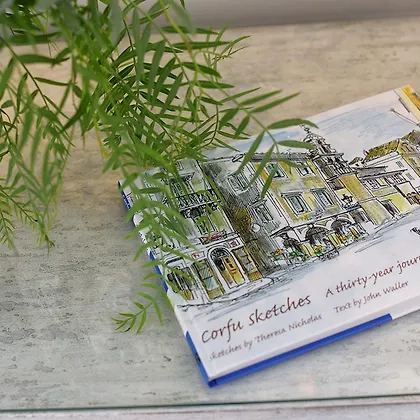 Corfu sketches A thirty-year jour
Sketches by Theresa Nicholas Text by John Waller